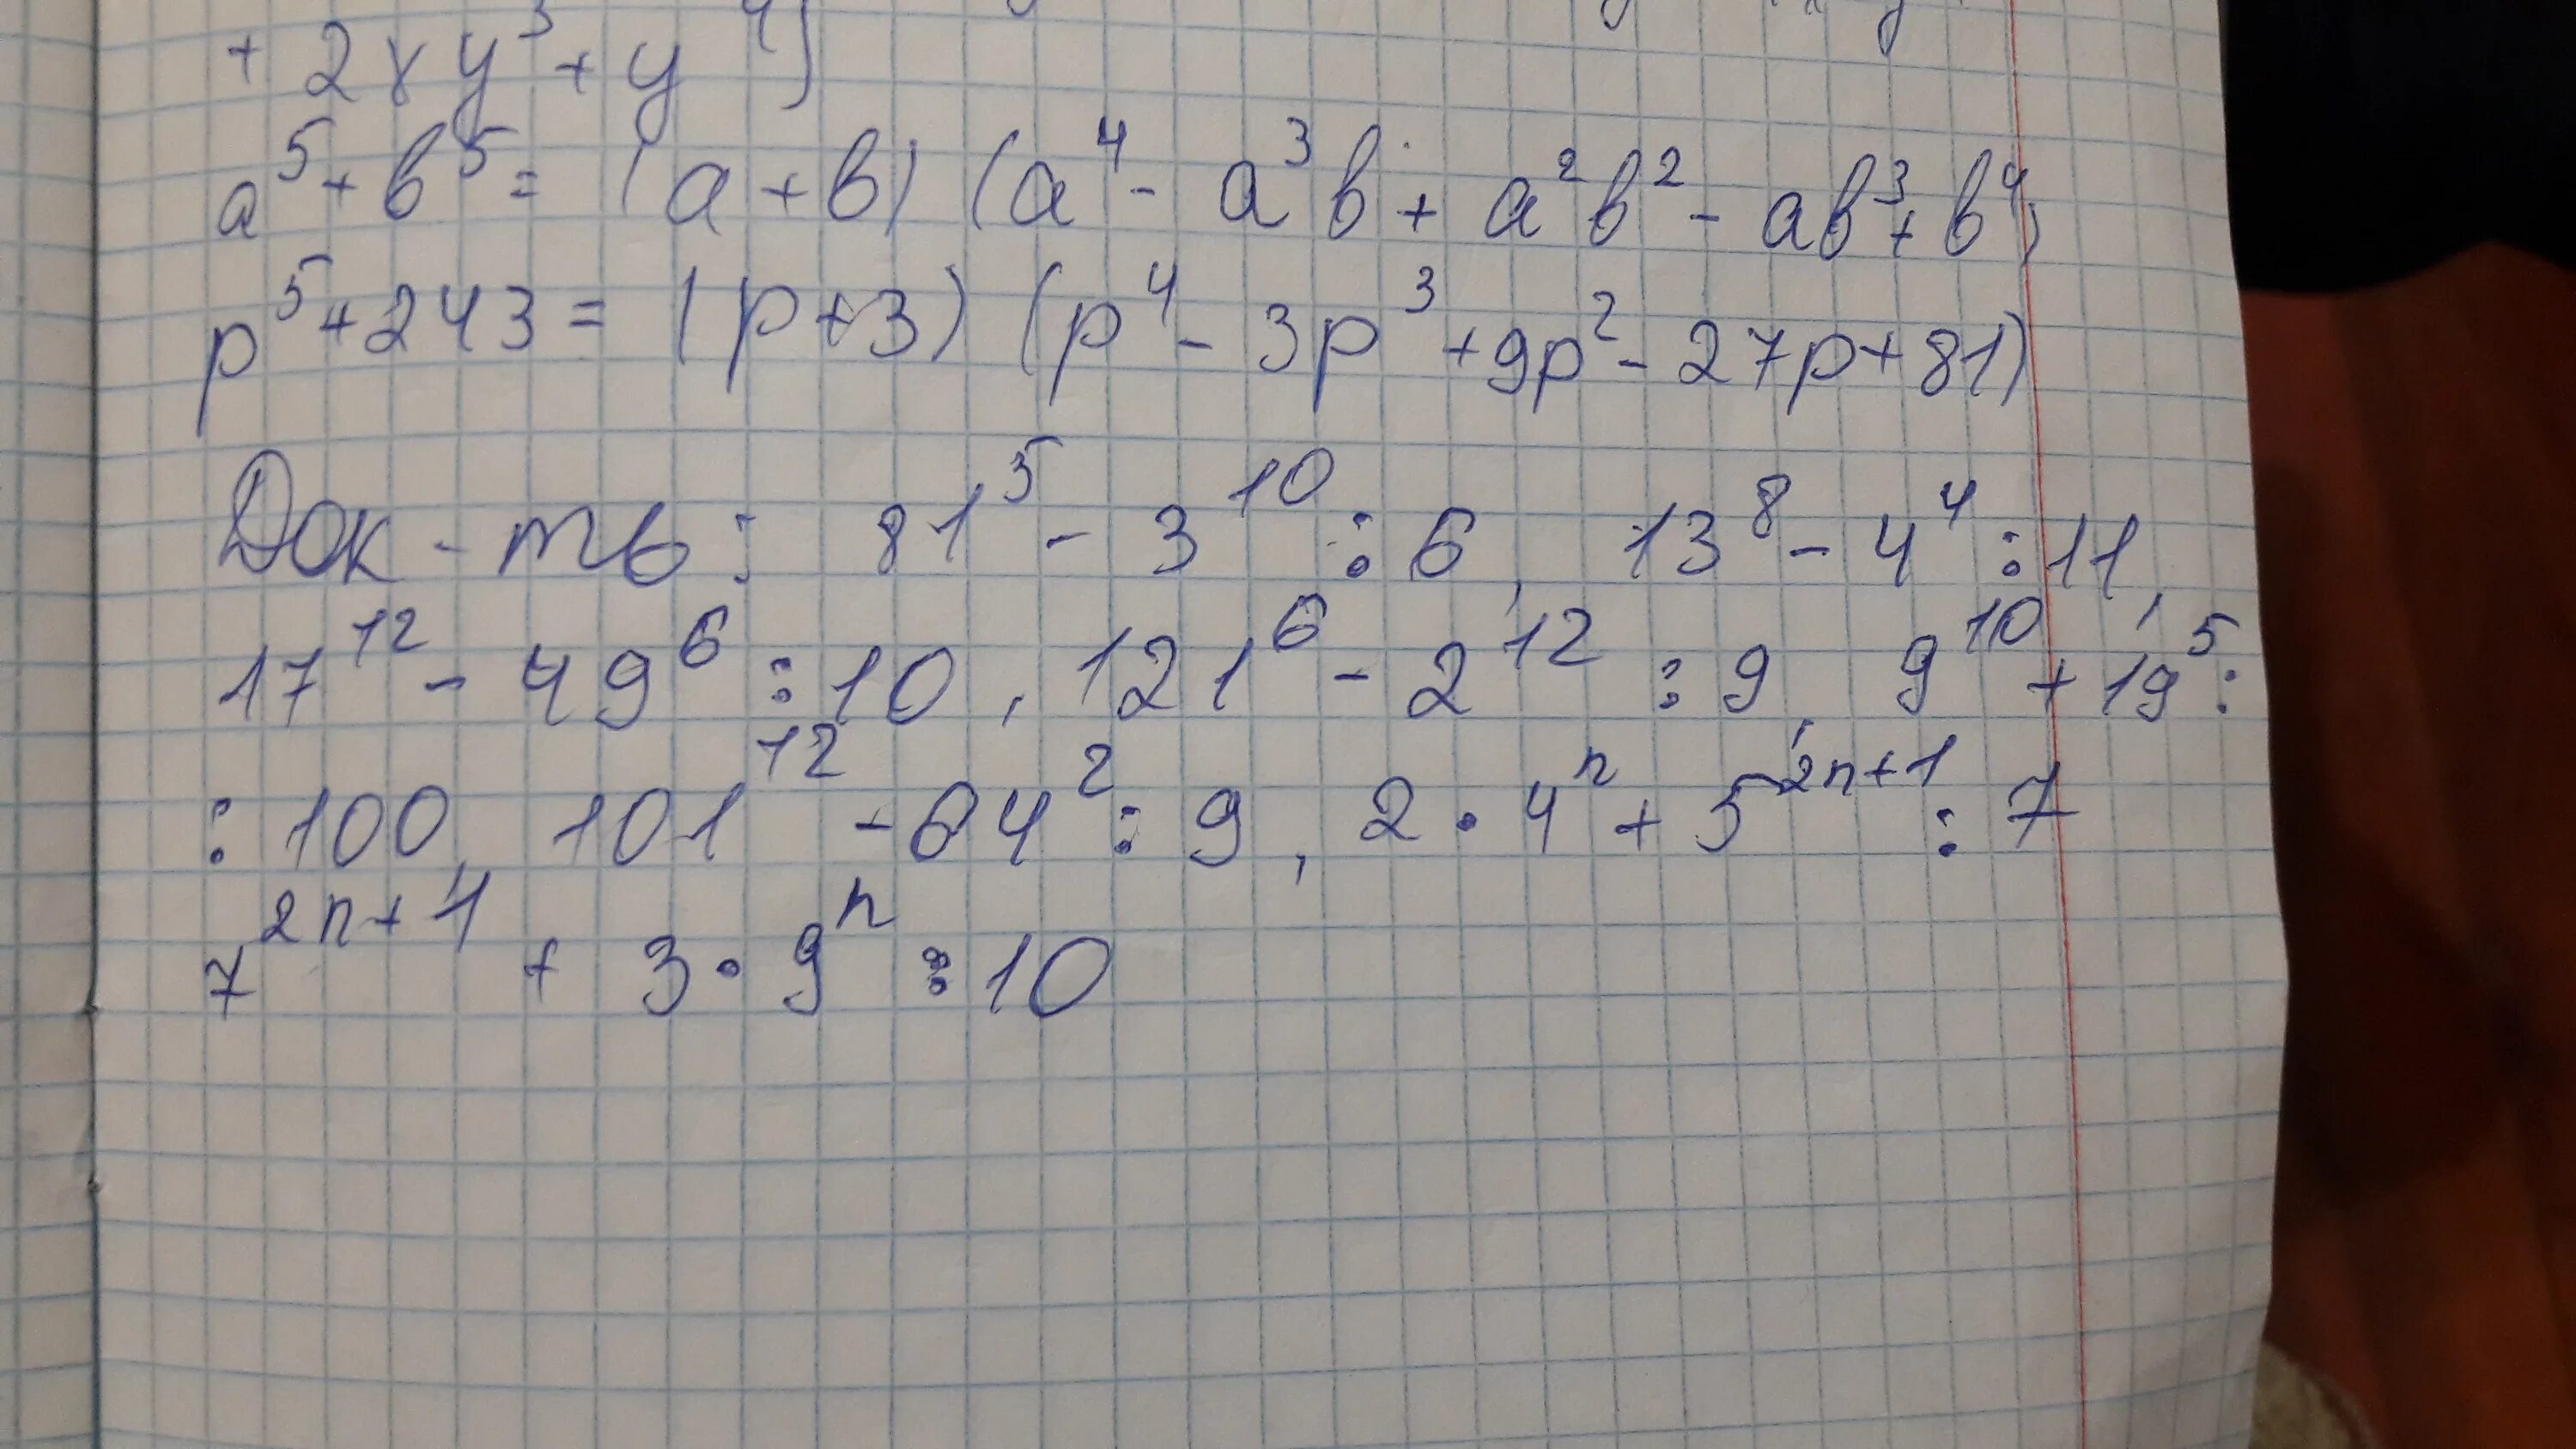 + 2xy³ + y⁴)
a⁵ + b⁵ = (a + b) (a⁴ - a³b + a²b² - ab³ + b⁴)
p⁵ + 243 = (p + 3) (p⁴ - 3p³ + 9p² - 27p + 81)
Док-ть: 81⁵ - 3¹⁰ ⋮ 6, 13⁸ - 4⁴ ⋮ 11,
17¹² - 49⁶ ⋮ 10, 121⁶ - 2¹² ⋮ 9, 9¹⁰ + 19⁵ ⋮
⋮ 100, 101¹² - 64² ⋮ 9, 2 · 4ⁿ + 5²ⁿ⁺¹ ⋮ 7
7²ⁿ⁺¹ + 3 · 9ⁿ ⋮ 10